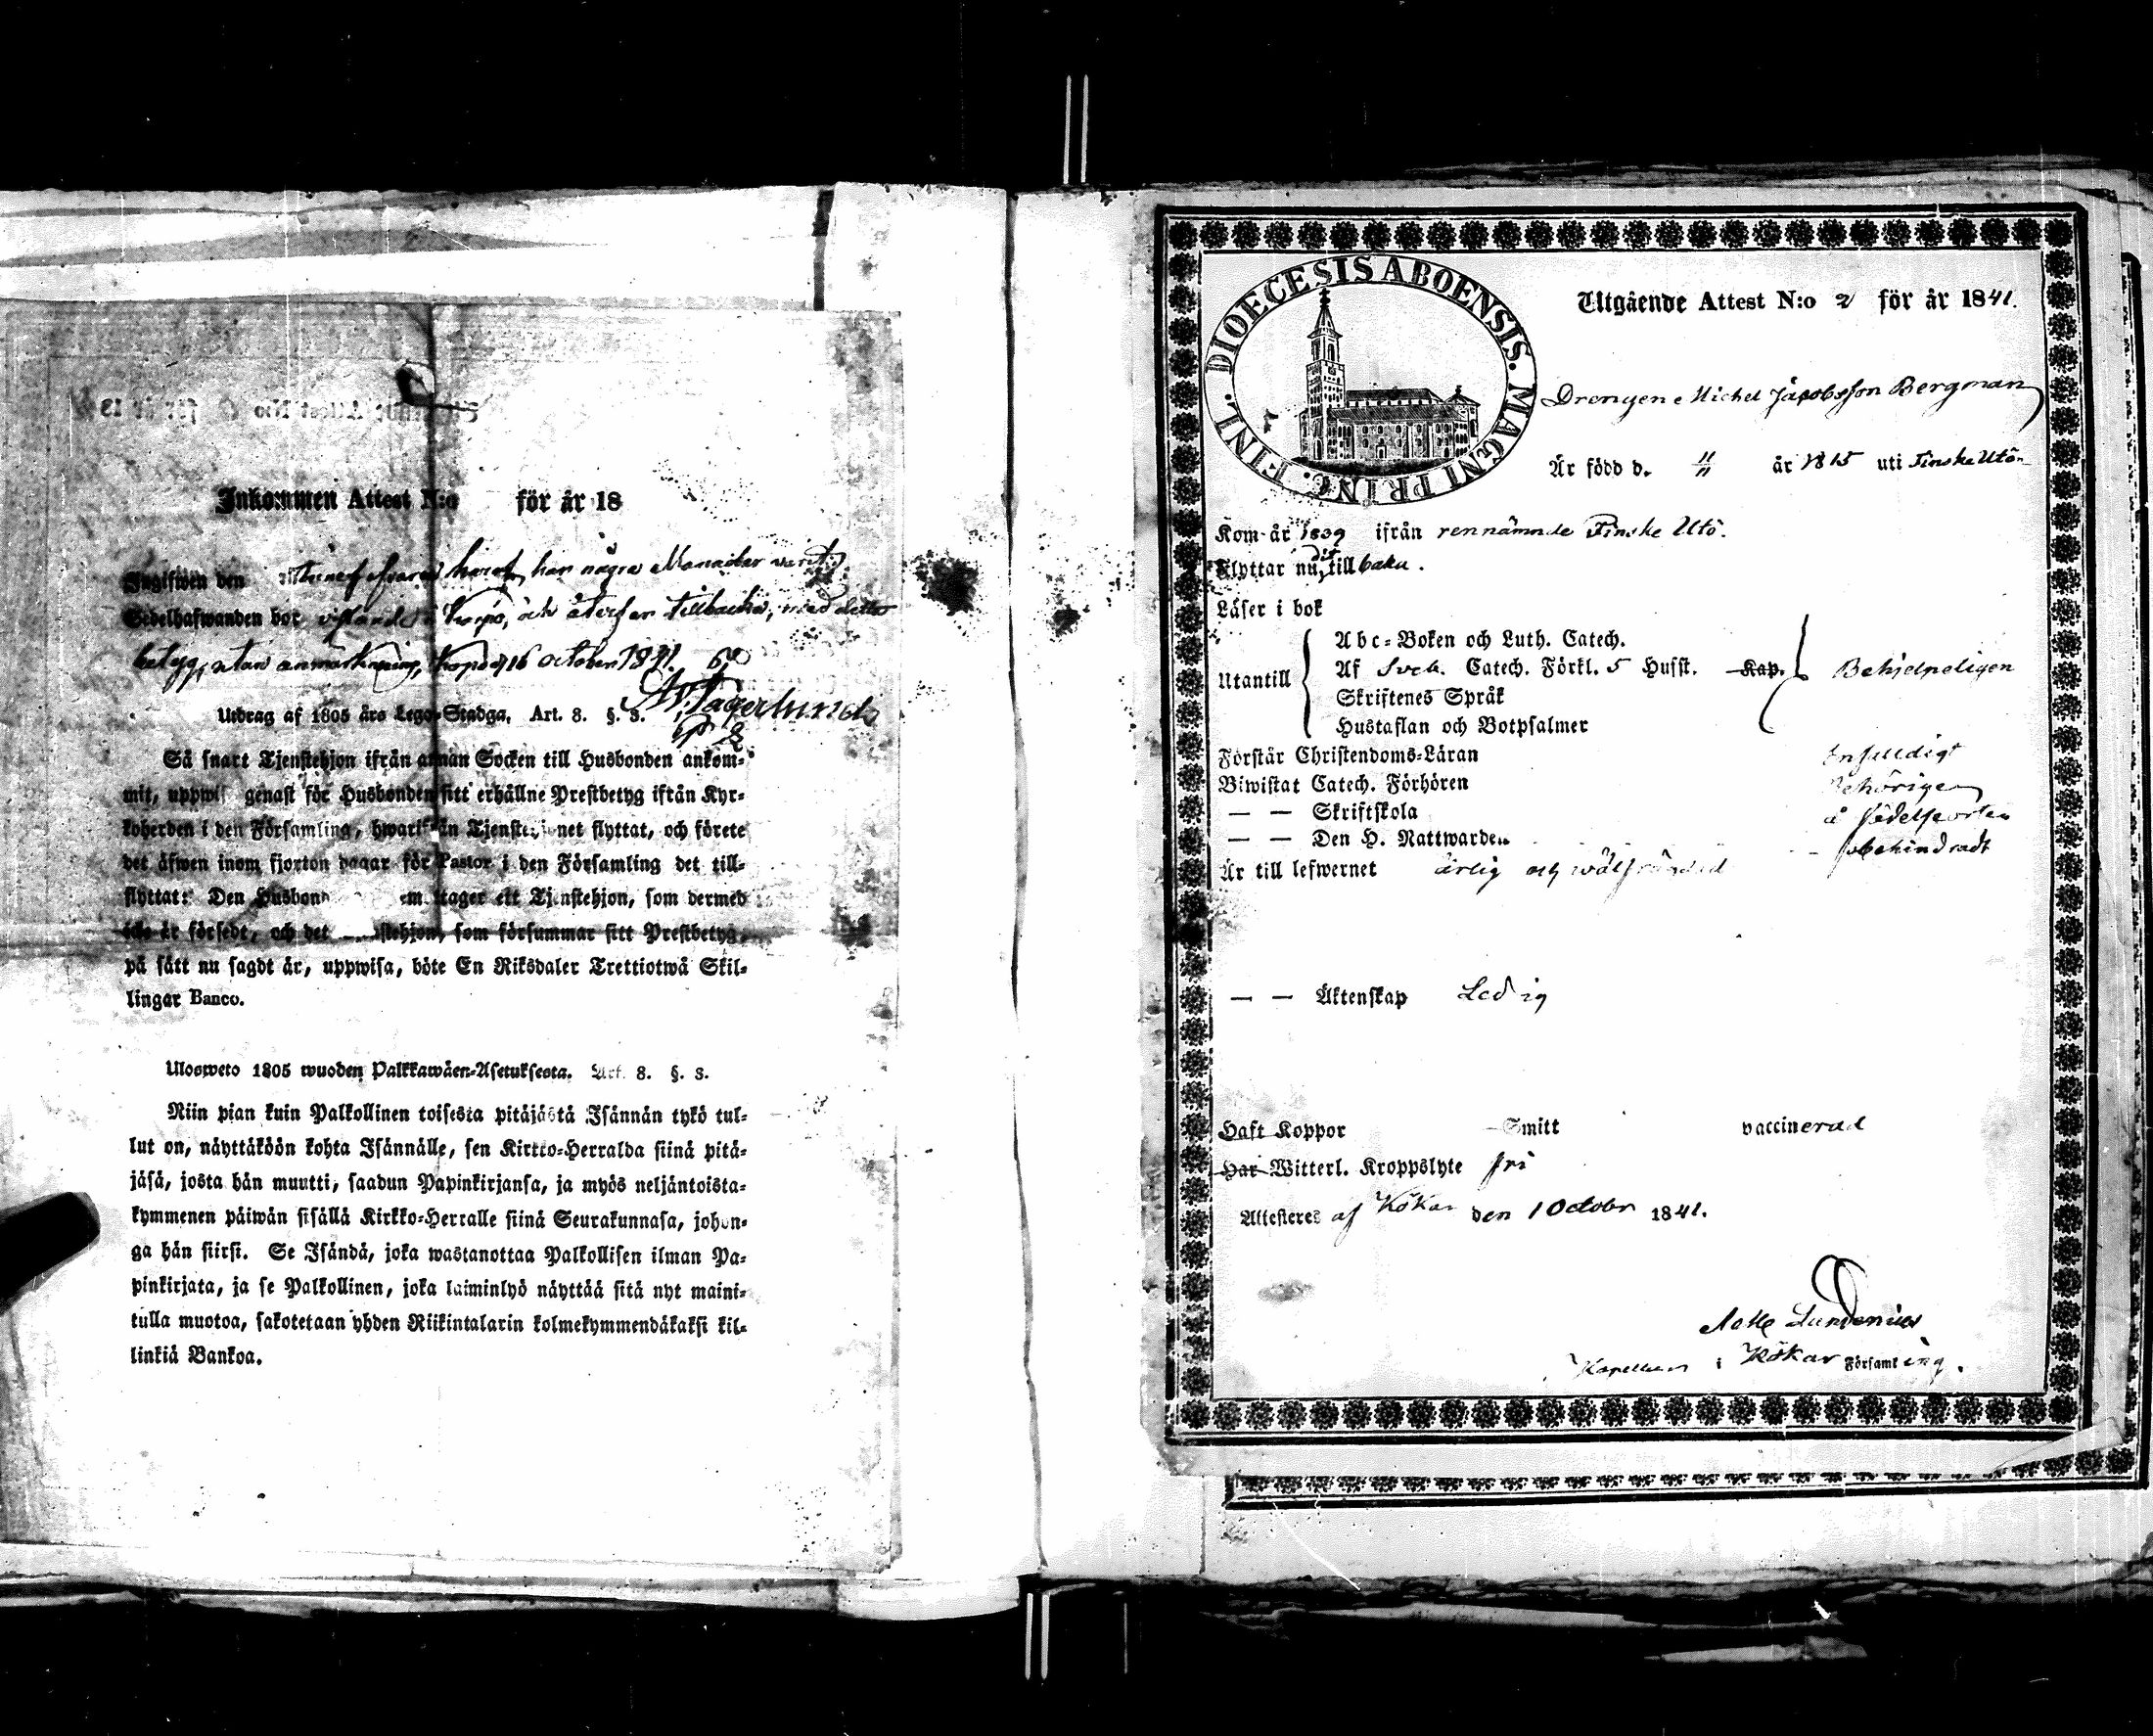 Inkommen Attest N:o för år 18
Ingifwen den har några Månader varit
Sedelhafwanden bor vistande i Korpo, och återfar tillbacka, med detta
betyg, utan anmärkning, Korpo d 16 october 1841.
Utdrag af 1805 års Lego-Stadga. Art. 8. §. 3.
Så snart Tjenstehjon ifrån annan Socken till Husbonden ankom-
mit, uppwis genast för Husbonden sitt erhållne Prestbetyg ifrån Kyr-
koherden i den Församling, hwarifrån Tjenstehjonet flyttat, och förete
det äfwen inom fjorton dagar för Pastor i den Församling det till-
flyttat: Den Husbonde emottager ett Tjenstehjon, som dermed
icke är försedt, och det Tjenstehjon, som försummar sitt Prestbetyg,
på sätt nu sagdt är, uppwisa, böte En Riksdaler Trettiotwå Skil-
lingar Banco.
Ulosweto 1805 wuoden Palkkawäen-Asetuksesta. Art. 8. §. 3.
Niin pian kuin Palkollinen toisesta pitäjästä Isännän tykö tul-
lut on, näyttäköön kohta Isännälle, sen Kirkko-Herralda siinä pitä-
jäsä, josta hän muutti, saadun Papinkirjansa, ja myös neljäntoista-
kymmenen päiwän sisällä Kirkko-Herralle siinä Seurakunnasa, johon-
ga hän siirsi. Se Isändä, joka wastanottaa Palkollisen ilman Pa-
pinkirjata, ja se Palkollinen, joka laiminlyö näyttää sitä nyt maini-
tulla muotoa, sakotetaan yhden Riikintalarin kolmekymmendäkaksi kil-
linkiä Bankoa.
DIOECESIS ABOENSIS. MAGNI PRINC. FINL.
Utgående Attest N:o 2 för år 1841.
Drengen Michel Jacobsson Bergman
Är född d. " år 1815 uti Finske Utö
Kom år 1839 ifrån rennämnde Finske Utö.
Flyttar nu dit tillbaka.
Läser i bok
Utantill
Abc-Boken och Luth. Catech.
Af Sveb. Catech. Förkl. 5 Hufst. Kap. Behjelpeligen
Skriftenes Språk
Hustaflan och Botpsalmer
Förstår Christendoms-Läran Enfalldigt
Biwistat Catech. Förhören Behörigen
— — Skriftskola å födelseorten
— — Den H. Nattwarden obehindradt
Är till lefwernet ärlig och wälfrägdad
— — Äktenskap Ledig
Haft Koppor Smitt vaccinerad
Har Witterl. Kroppslyte fri
Attesteres af Kökar den 1 Octobr 1841.
Lundenius
Kapellan i Kökar Församling.